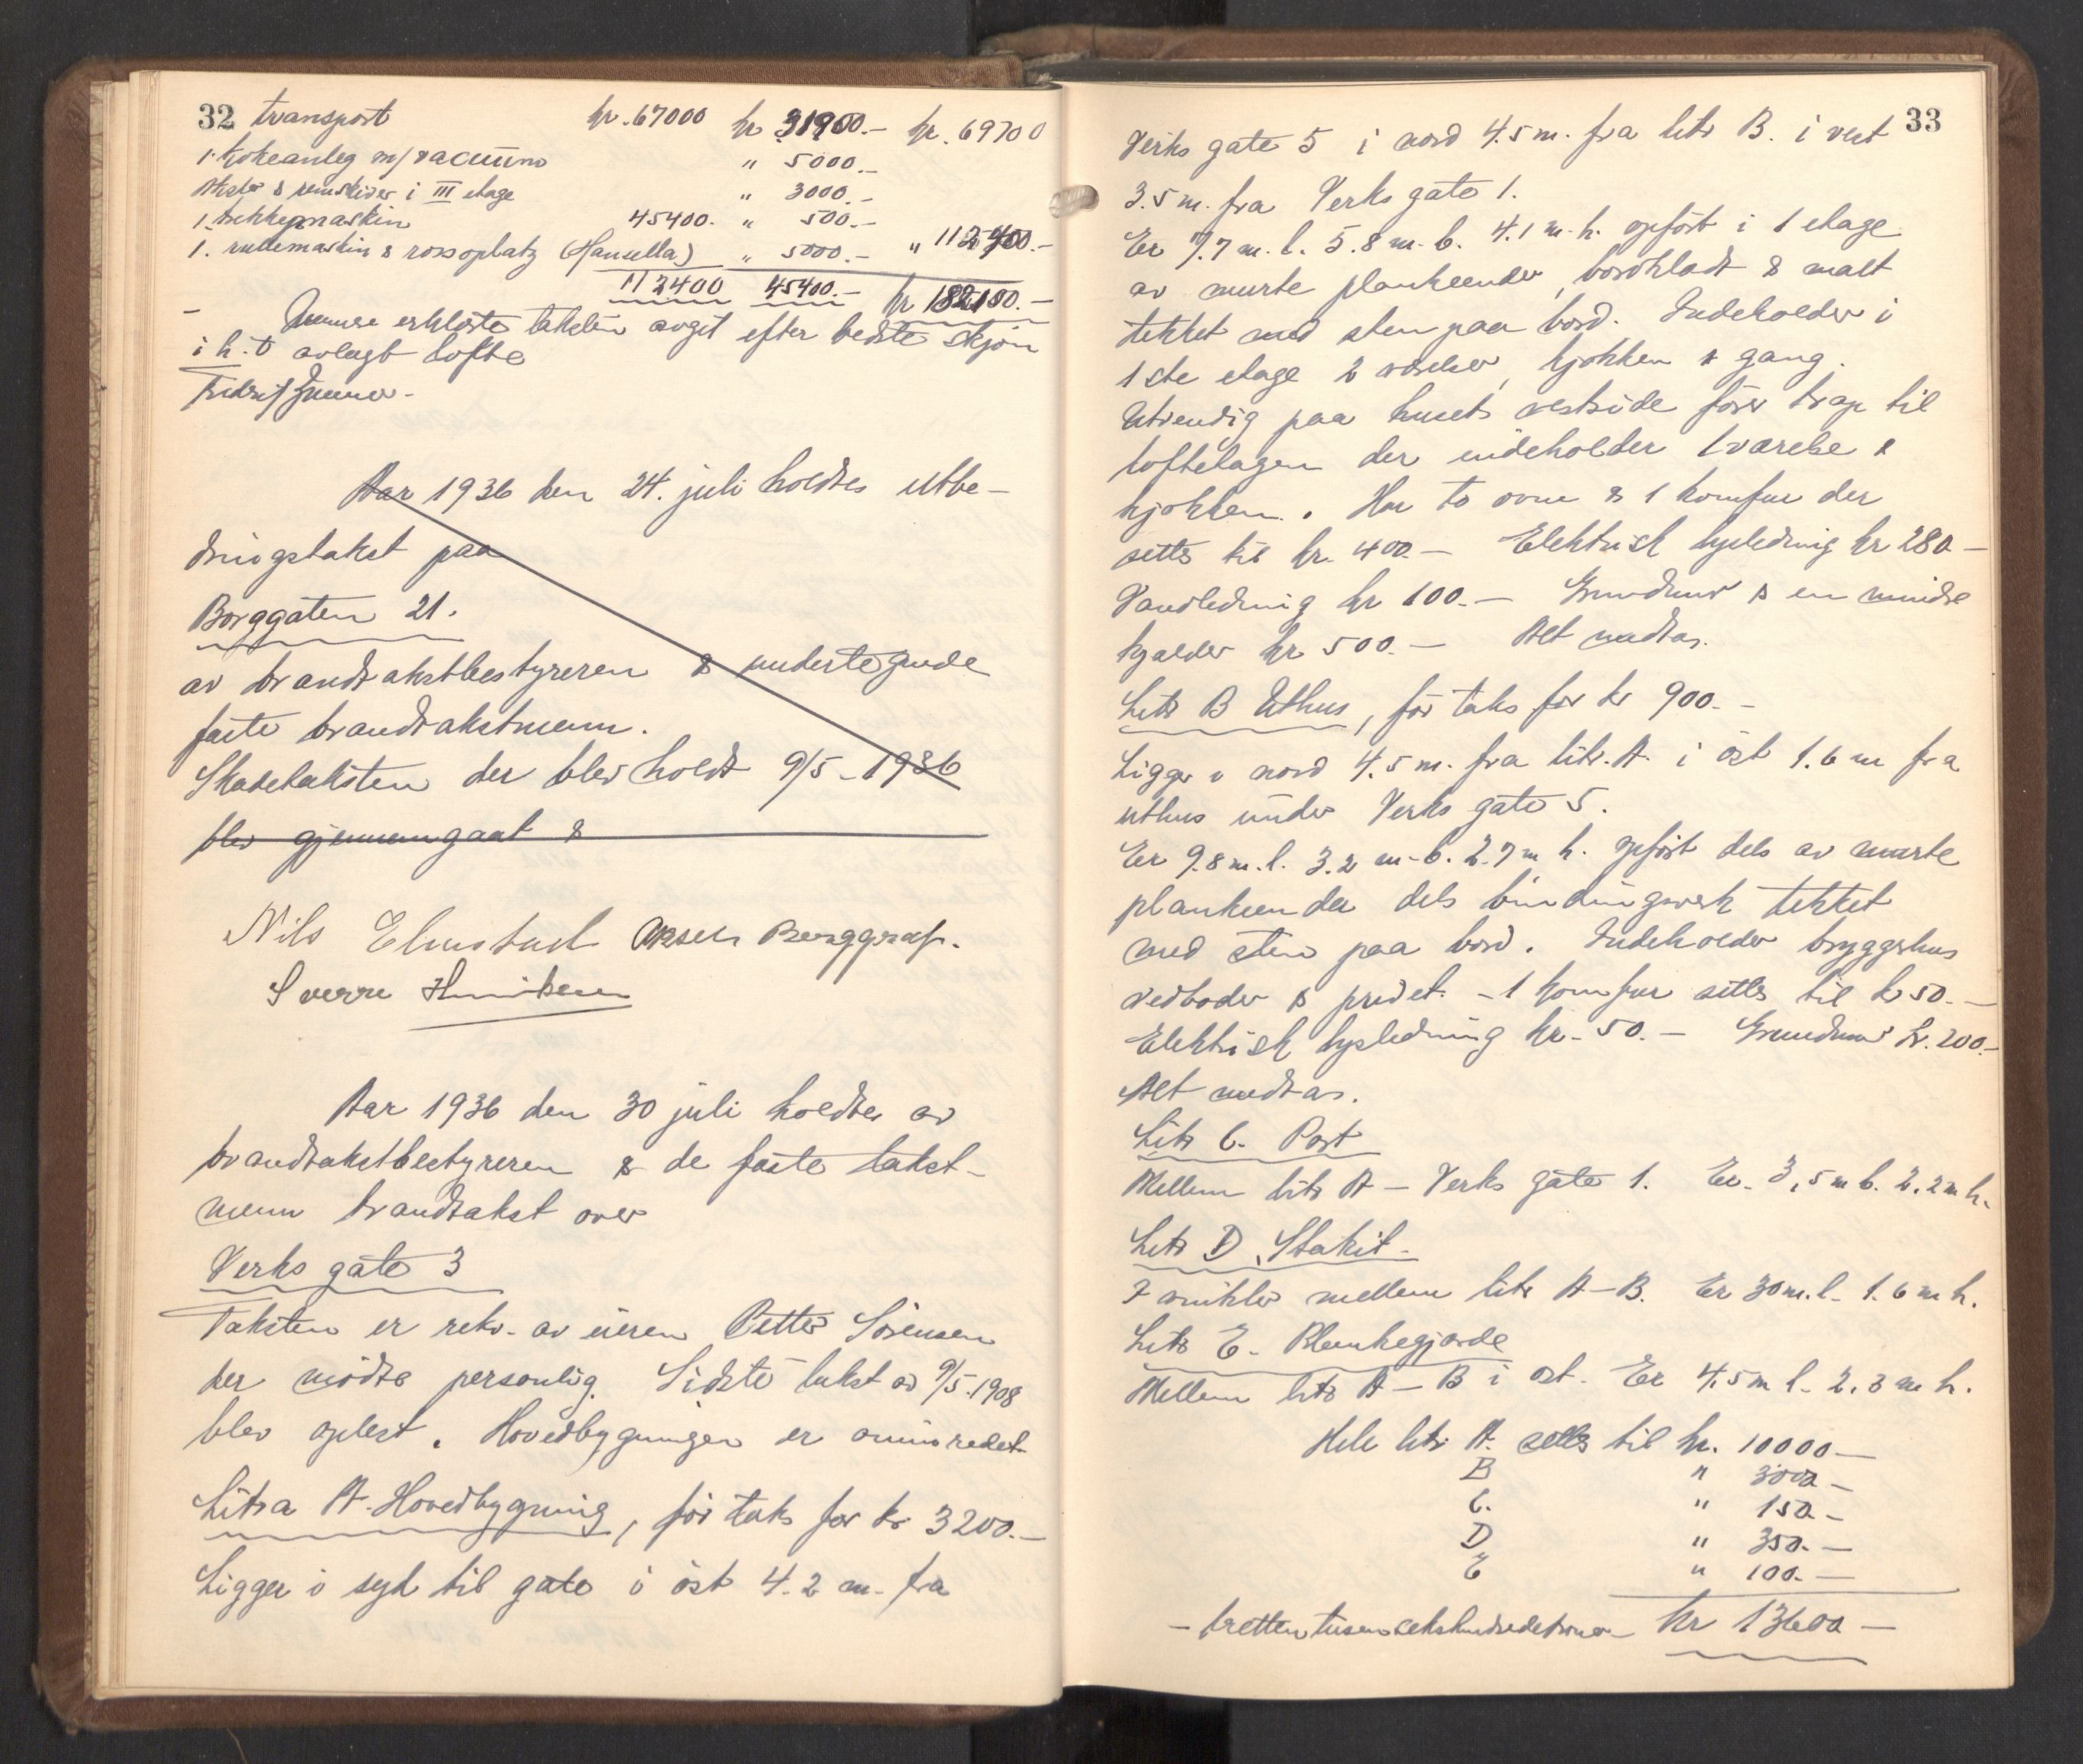 32 transport kr. 67000 kr. 31900.- kr. 69700
1. kokeanleg m/vacuum " 5000.-
Aksler & remskiver i III etage " 3000.-
1. trekkemaskin 45400. " 500.-
1. rullemaskin & rosoplatz (Hansella) " 5000.- " 112400.-
112400 45400.- kr 182100.-
erklærte taksten avgit efter bedste skjøn
i h. t avlagt løfte
Aar 1936 den 24. juli holdtes utbe-
dringstakst paa
Borggaten 21.
av brandtakstbestyreren & undertegnede
faste brandtakstmenn.
Skadetaksten der blev holdt 9/5-1936
blev gjennemgaat &
Nils Elmstad Aksel Borggraf.
Sverre Henriksen
Aar 1936 den 30 juli holdtes av
brandtakstbestyreren & de faste takst-
menn brandtakst over
Verks gate 3
Taksten er rekv. av eieren Petter Sørensen
der mødte personlig. Sidste takst av 9/5.1908
blev oplest. Hovedbygningen er ominredet
Litra A. Hovedbygning, før takst for kr 3200.-
Ligger i syd til gate i øst 4.2 m. fra
33
Verks gate 5 i nord 4.5 m. fra litr B. i vest
3.5 m. fra Verks gate 1.
Er 7.7 m. l. 5.8 m. b. 4.1 m. h. opført i 1 etage
av murte plankeender, bordklædt & malt
tekket med sten paa bord. Indeholder i
1ste etage 2 værelser, kjøkken & gang.
Utvendig paa husets vestside fører trap til
loftetagen der indeholder 1 værelse &
kjøkken. Har to ovne & 1 komfur der
settes til kr. 400.- Elektrisk lysledning kr 280-
Vandledning kr 100.- Grundmur & en mindre
kjælder kr 500.- Alt medtas.
Litr B Uthus, før taks for kr 900.-
Ligger i nord 4.5 m. fra litr. A. i øst 1.6 m fra
uthus under Verks gate 5.
Er 9.8 m. l. 3.2 m. b. 2.7 m h. opført dels av murte
plankeender dels bindingsverk tekket
med sten paa bord. Indeholder bryggerhus
vedboder & privet. - 1 komfur settes til kr 50.-
Elektrisk lysledning kr. 50.- Grundmur kr. 200.-
Alt medtas.
Litr C. Port
Mellem litr A - Verks gate 1. Er. 3,5 m b. 2.2 m h.
Litr D. Stakit.
I vinkler mellem litr A-B. Er 30 m. l. 1.6 m h.
Litr E. Plankegjærde
Mellem litr A - B i øst. Er 4.5 m l. 2.3 m h.
Hele litr A. settes til kr. 10000-
B " 3000-
C. " 150.-
D " 350.-
E " 100.-
- trettentusensekshundredekroner- kr 13600-